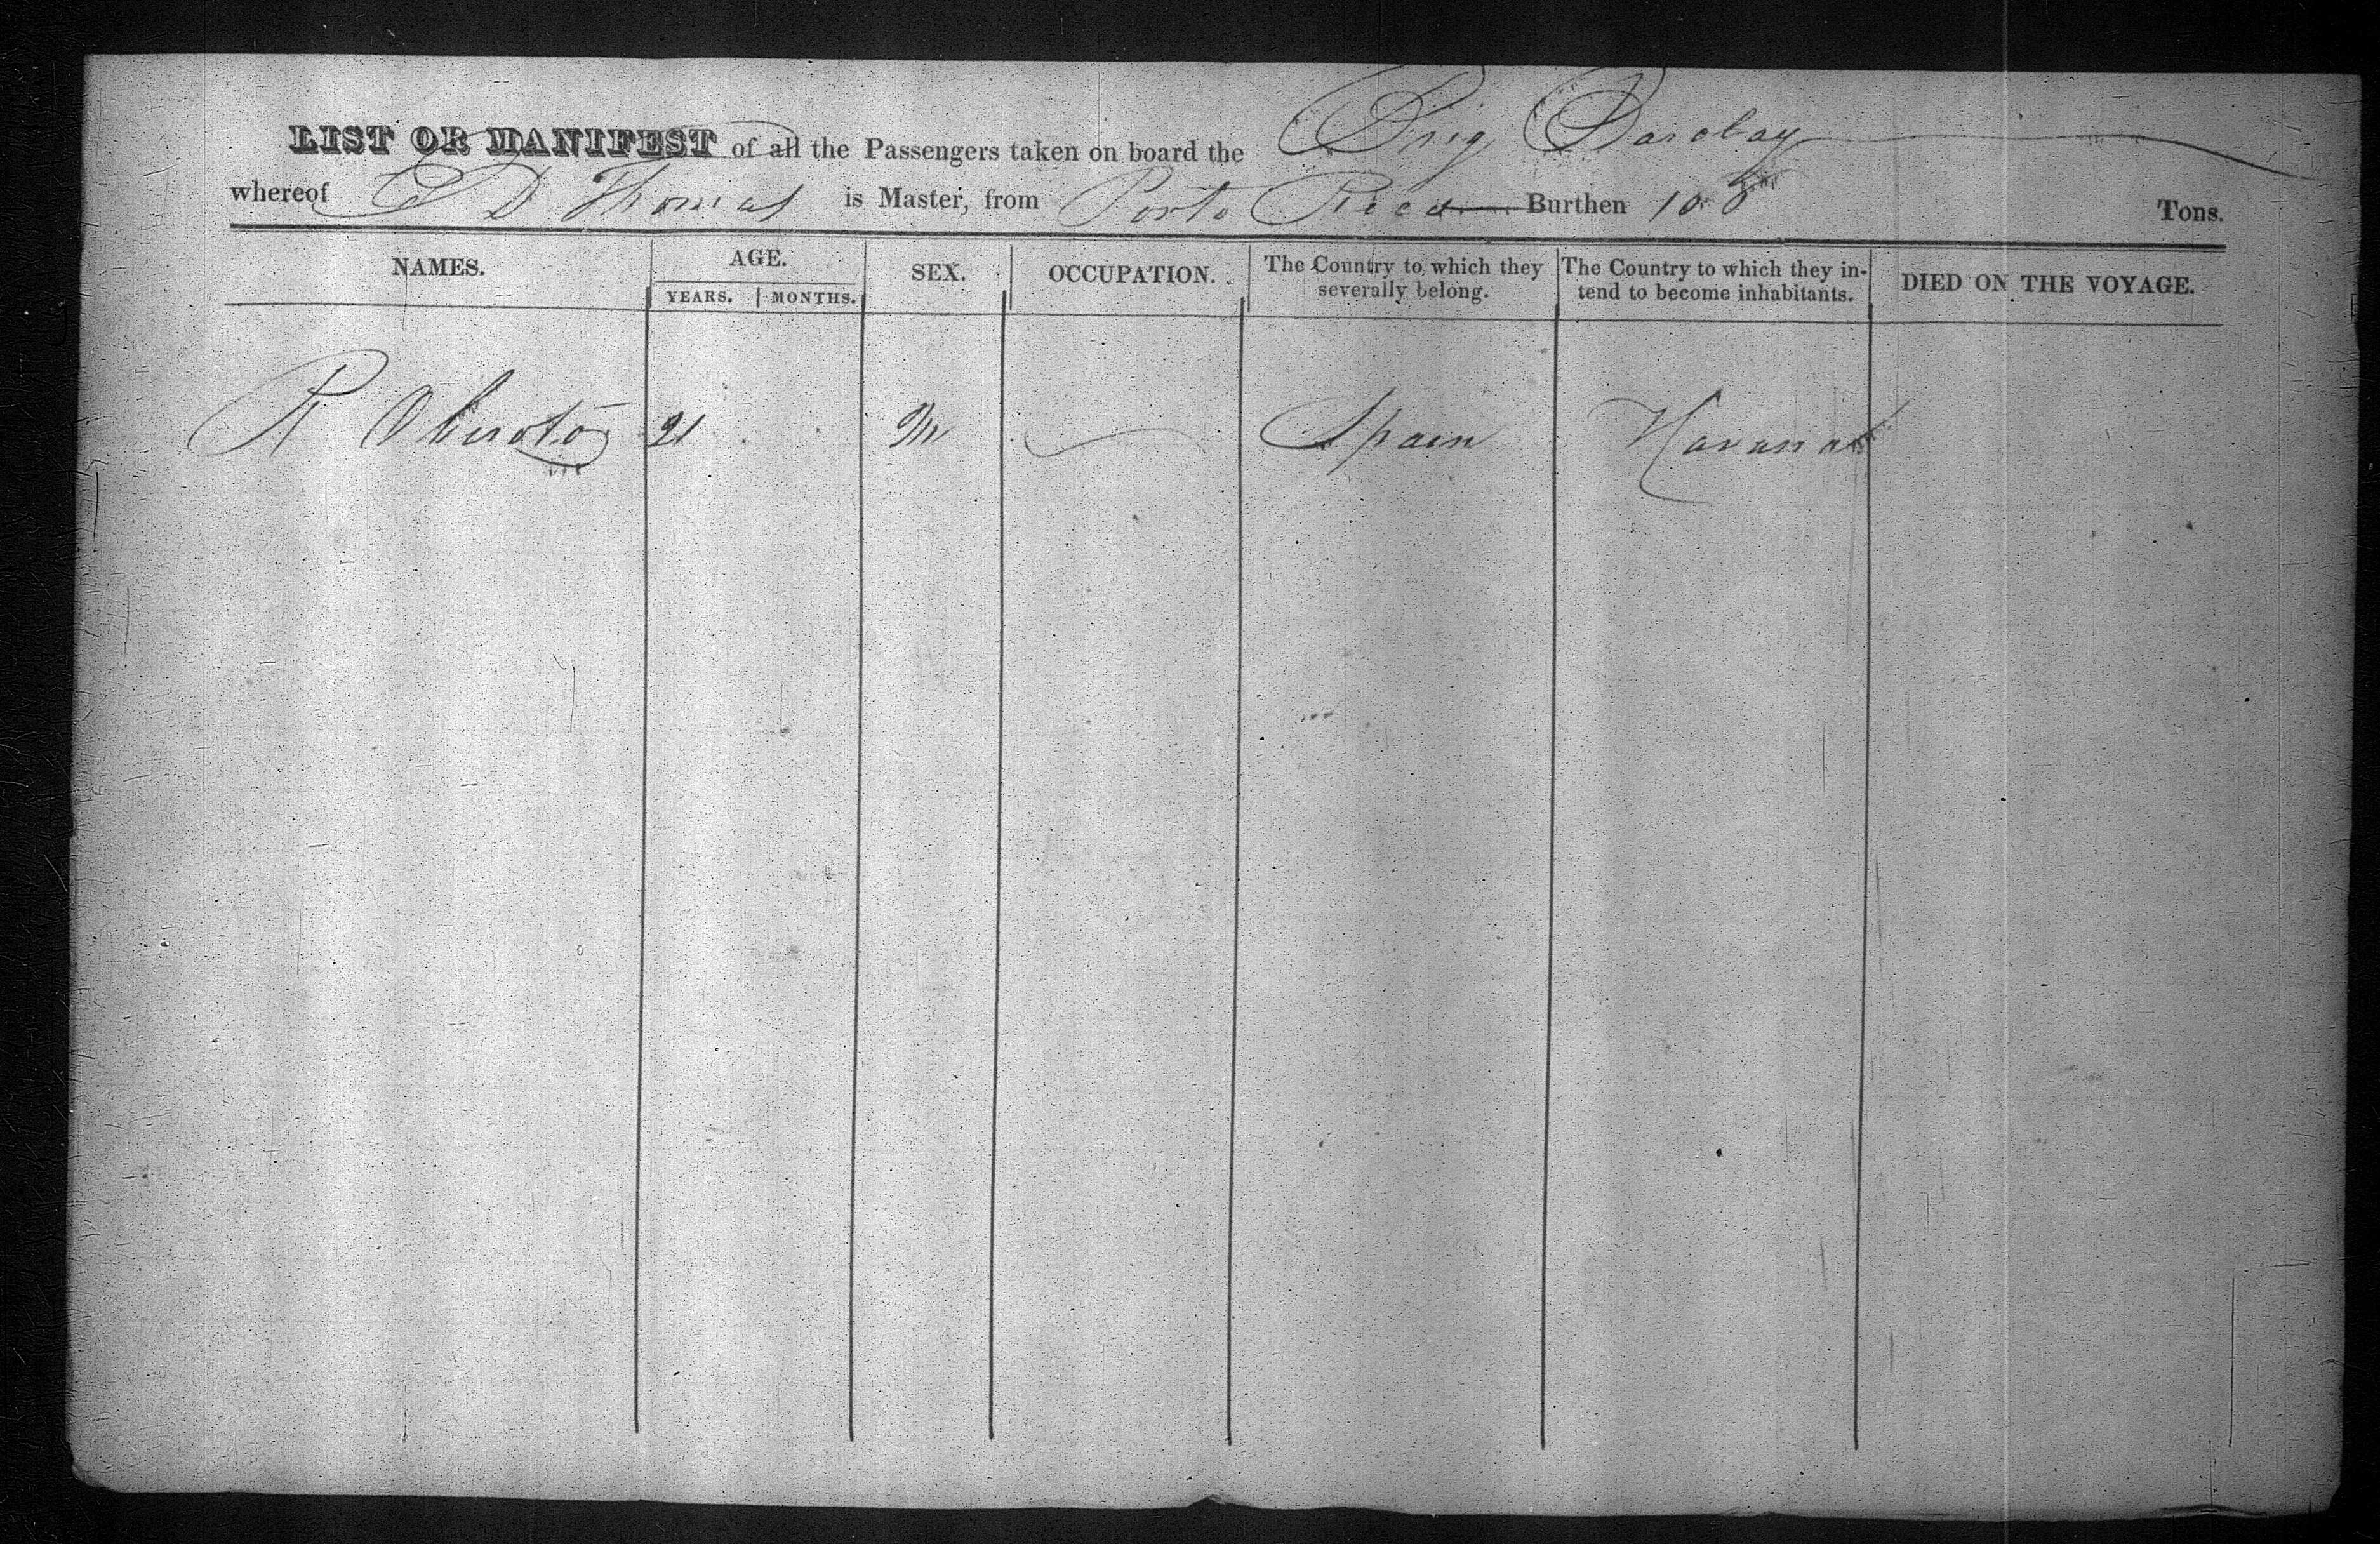 LIST OR MANIFEST of all the Passengers taken on board the Brig
whereof D Thomas is Master, from Porto Rico Burthen Tons.
NAMES. AGE. SEX. OCCUPATION. The Country to which they severally belong. The Country to which they intend to become inhabitants. DIED ON THE VOYAGE.
YEARS. MONTHS.
R 21 M Spain Havana